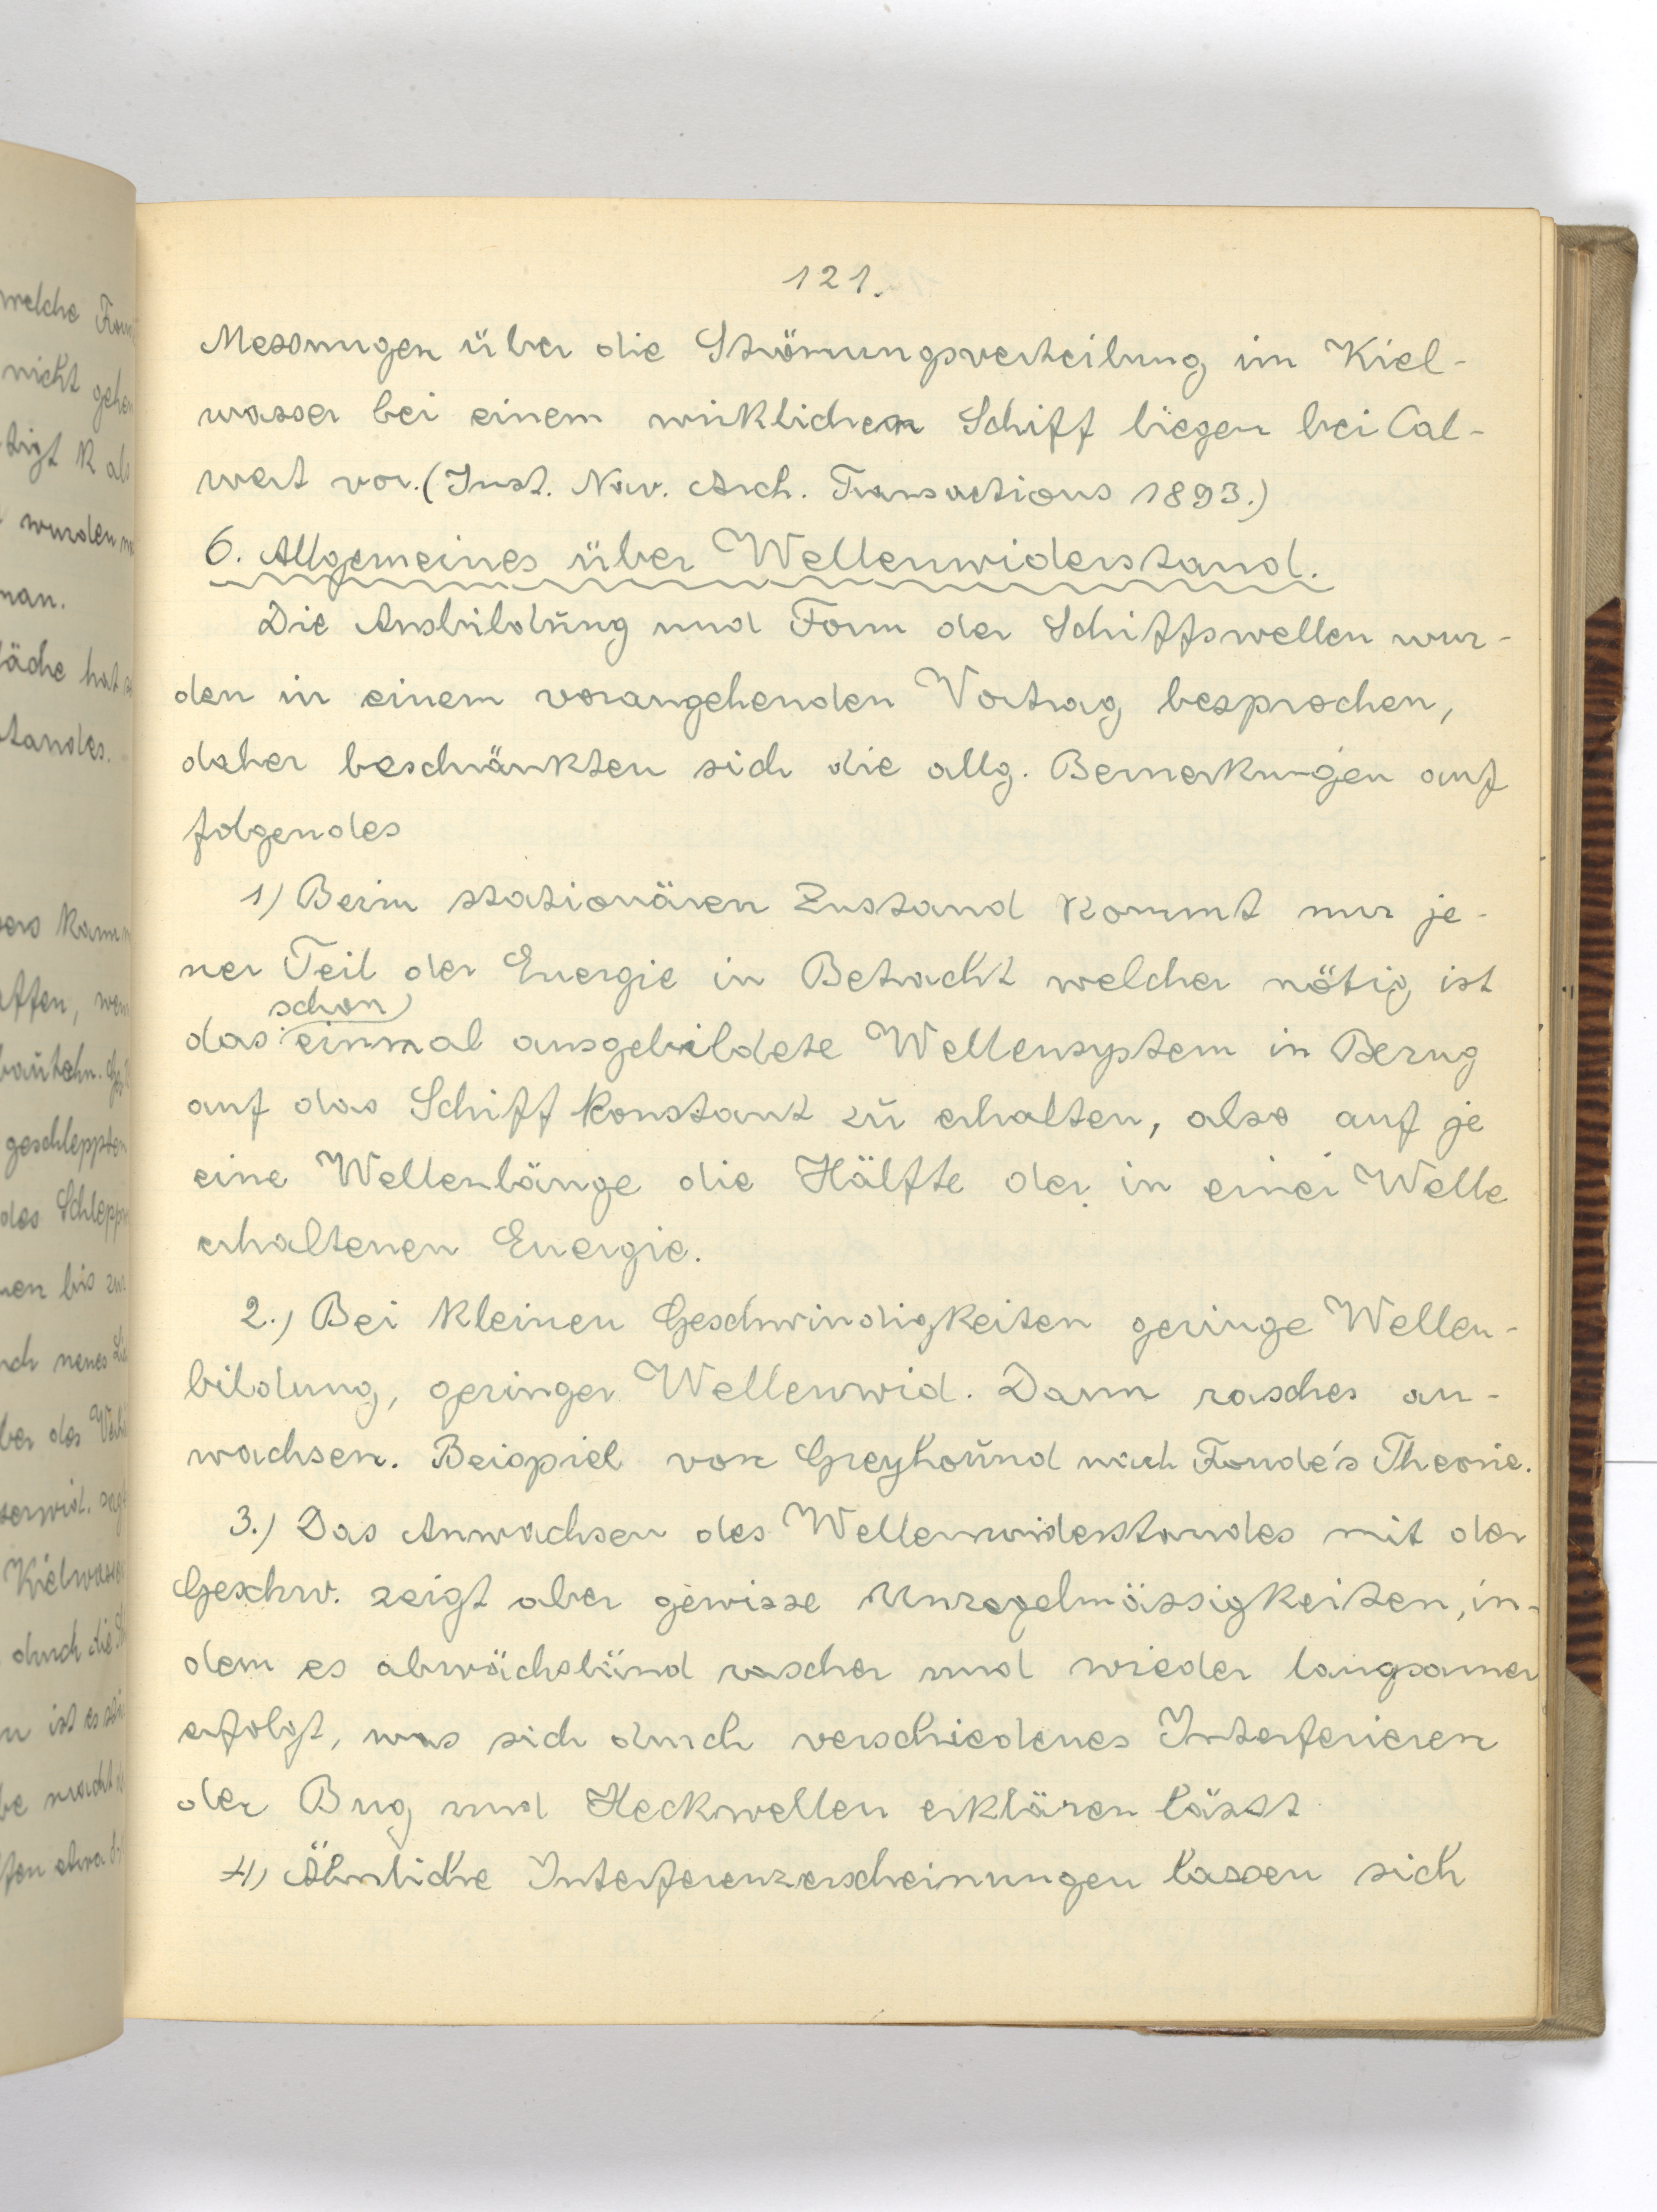 121.
Messungen über die Strömungsverteilung im Kiel-
wasser bei einem wirklichen Schiff liegen bei Cal-
wert vor. (Inst. Nav. Arch. Transactions 1893.)
6. Allgemeines über Wellenwiderstand.
Die Ausbildung und Form der Schiffswellen wur-
den in einem vorangehenden Vortrag besprochen,
daher beschränkten sich die allg. Bemerkungen auf
folgendes
1) Beim stationären Zustand kommt nur je-
ner Teil der Energie in Betracht welcher nötig ist
schon
das einmal ausgebildete Wellensystem in Bezug
auf das Schiff konstant zu erhalten, also auf je
eine Wellenlänge die Hälfte der in einer Welle
erhaltenen Energie.
2.) Bei kleinen Geschwindigkeiten geringe Wellen-
bildung, geringer Wellenwid. Dann rasches an-
wachsen. Beispiel von Greyhound nach Froude's Theorie.
3.) Das Anwachsen des Wellenwiderstandes mit der
Geschw. zeigt aber gewisse Unregelmässigkeiten, in-
dem es abwächslünd rascher und wieder langsamer
erfolgt, was sich durch verschiedenes Interferieren
der Bug und Heckwellen erklären lässt
4) Ähnliche Interferenzerscheinungen lassen sich
welche
nicht
tigt K als
wurden
man.
läche hat
standes.
kann
bautechn.
geschleppten
des
bis
neues
ber das
Kielwasser
durch die
ist es
macht
etwa